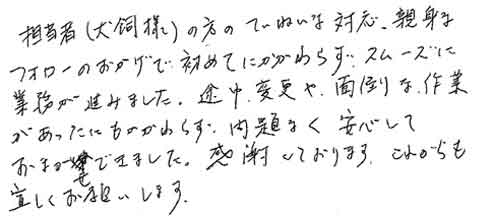 担当者(犬飼様)の方のていねいな対応、親身な
フォローのおかげで初めてにかかわらず、スムーズに
業務が進みました。途中、変更や、面倒な作業
があったにもかかわらず、問題なく安心して
おまかせできました。感謝しております。これからも
宜しくお願いします。